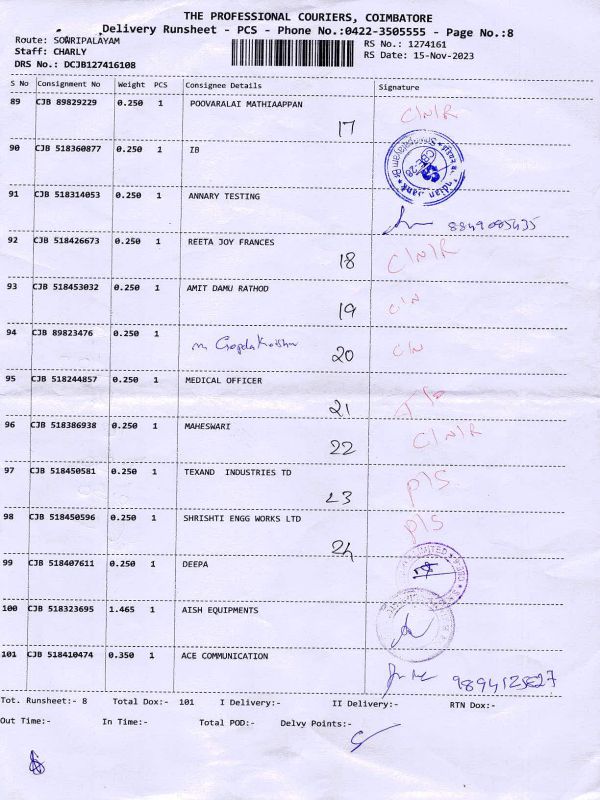 THE PROFESSIONAL COURIERS, COIMBATORE
Delivery Runsheet - PCS - Phone No.:0422-3505555 - Page No.:8
Route: SOWRIPALAYAM
Staff: CHARLY
DRS No.: DCJB127416108
RS No.: 1274161
RS Date: 15-Nov-2023
S No Consignment No Weight PCS Consignee Details Signature
89 CJB 89829229 0.250 1 POOVARALAI MATHIAAPPAN 17 C/N/R
90 CJB 518360877 0.250 1 IB
91 CJB 518314053 0.250 1 ANNARY TESTING
92 CJB 518426673 0.250 1 REETA JOY FRANCES 18 C/N/R
93 CJB 518453032 0.250 1 AMIT DAMU RATHOD 19 C/N
94 CJB 89823476 0.250 1 20 C/N
95 CJB 518244857 0.250 1 MEDICAL OFFICER 21
96 CJB 518386938 0.250 1 MAHESWARI 22 C/N/R
97 CJB 518450581 0.250 1 TEXAND INDUSTRIES TD 23 P/S
98 CJB 518450596 0.250 1 SHRISHTI ENGG WORKS LTD 24 P/S
99 CJB 518407611 0.250 1 DEEPA
100 CJB 518323695 1.465 1 AISH EQUIPMENTS
101 CJB 518410474 0.350 1 ACE COMMUNICATION
Tot. Runsheet:- 8 Total Dox:- 101 I Delivery:- II Delivery:- RTN Dox:-
Out Time:- In Time:- Total POD:- Delvy Points:-